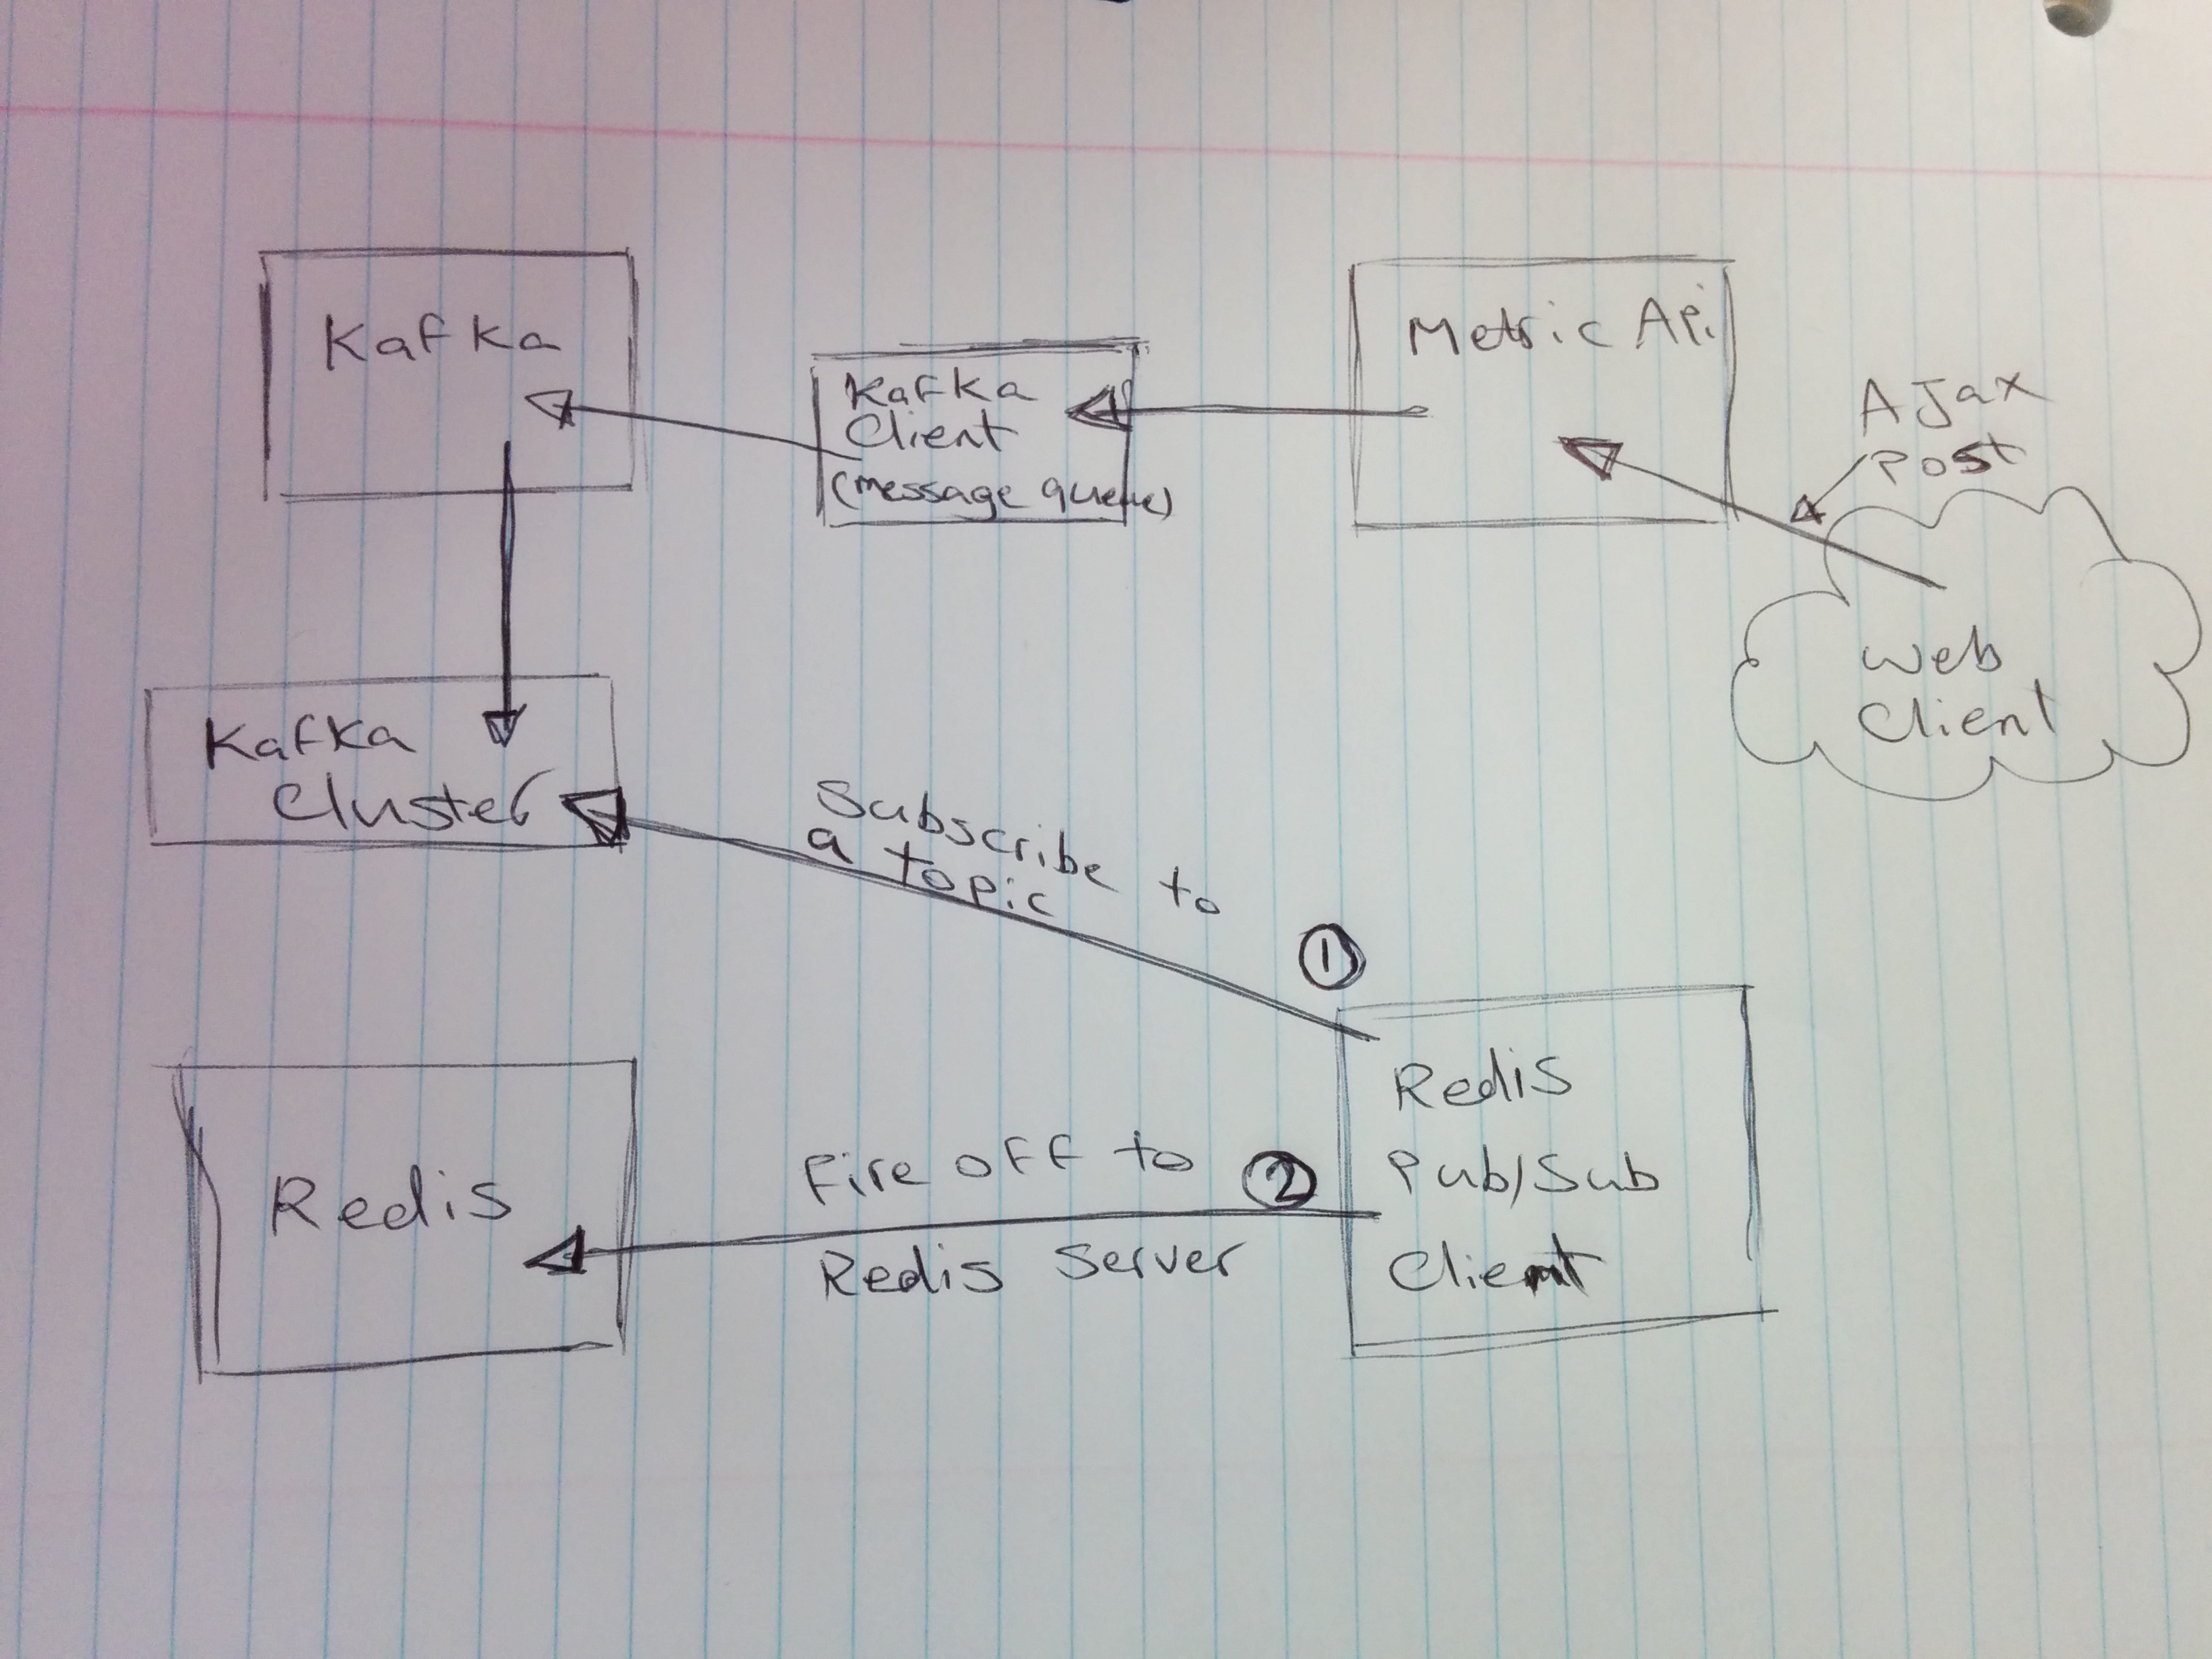 Kafka
Kafka
Client
(message queue)
Metric Api
AJax
Post
Web
Client
Kafka
Cluster
Subscribe to
a topic
1
Redis
Pub/Sub
Client
Redis
Fire off to
2
Redis Server